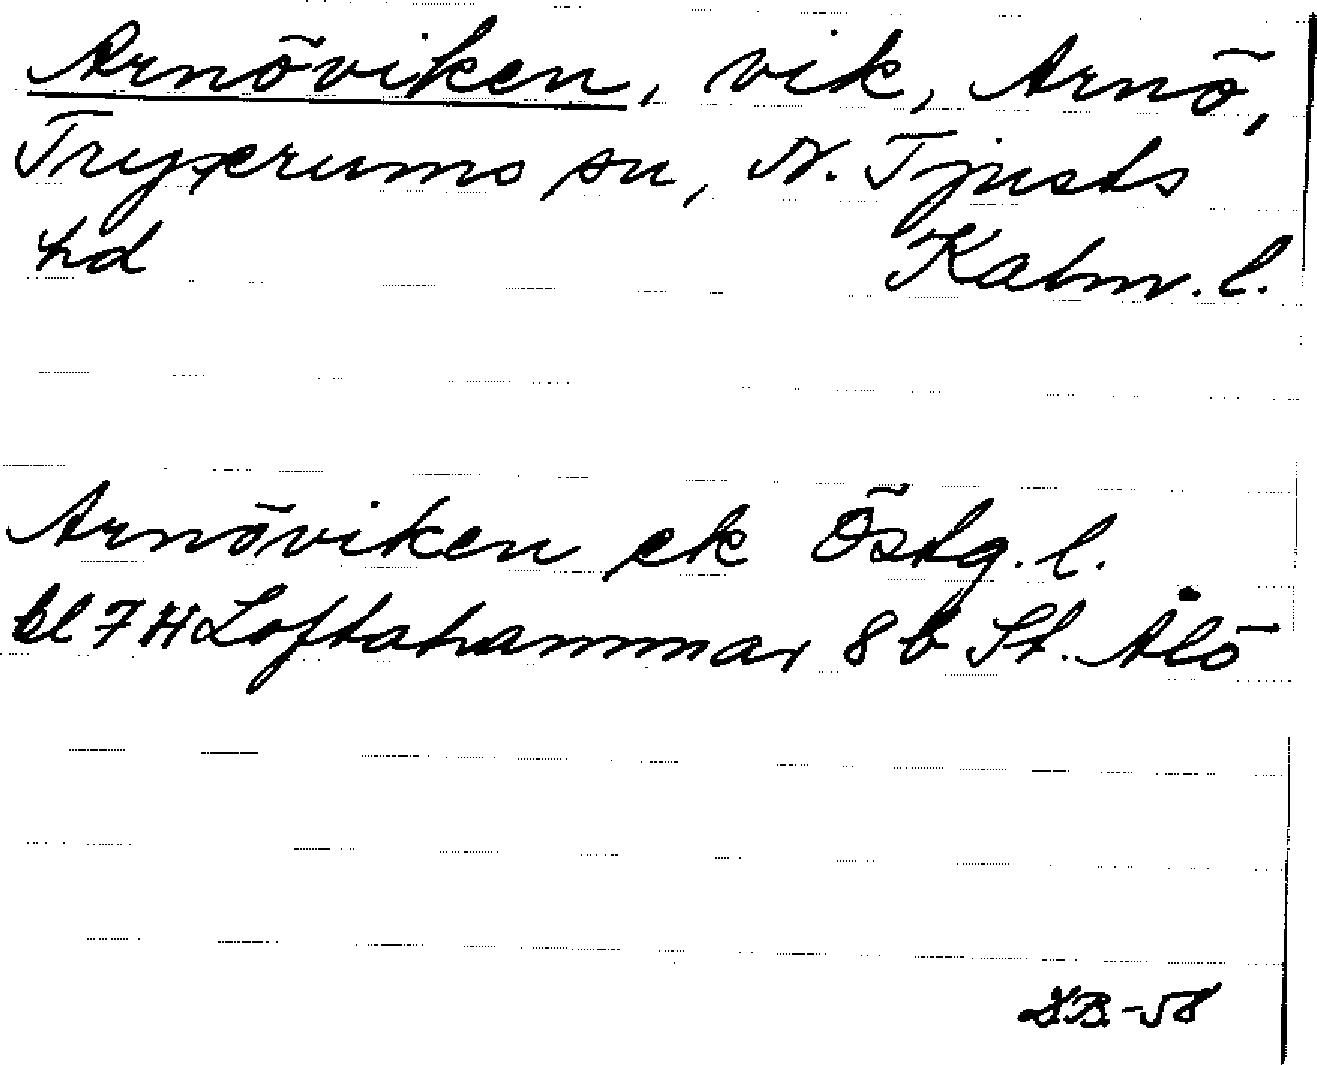 Arnöviken, vik, Arnö,
Tryserums sn, N. Tjusts
hd Kalm. l.
Arnöviken ek Östg. l.
bl 7 H Loftahammar 8 b St. Ålö
-58